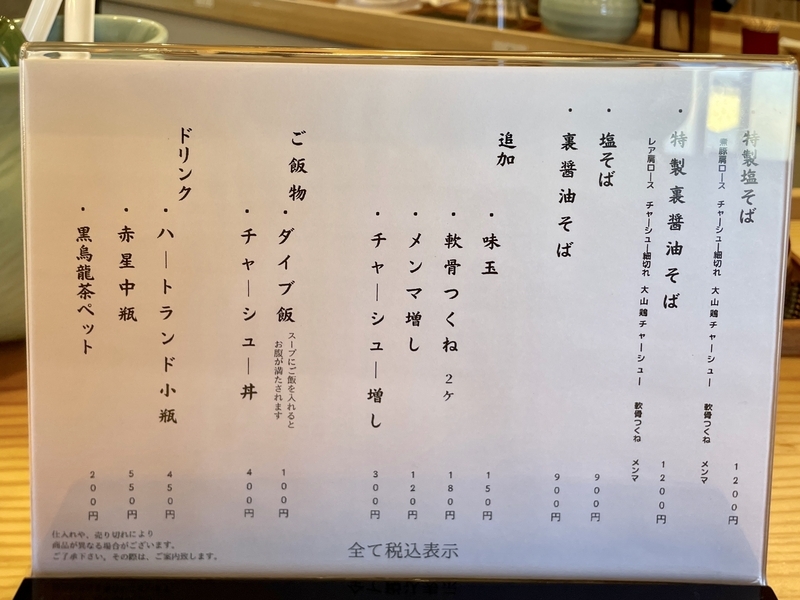 ・特製塩そば 1200円
東豚肩ロース チャーシュー細切れ 大山鶏チャーシュー 軟骨つくね メンマ
・特製裏醤油そば 1200円
レア肩ロース チャーシュー細切れ 大山鶏チャーシュー 軟骨つくね メンマ
・塩そば 900円
・裏醤油そば 900円
追加
・味玉 150円
・軟骨つくね 2ヶ 180円
・メンマ増し 120円
・チャーシュー増し 300円
ご飯物
・ダイブ飯 スープにご飯を入れると 100円
お腹が満たされます
・チャーシュー丼 400円
ドリンク
・ハートランド小瓶 450円
・赤星中瓶 550円
・黒烏龍茶ペット 200円
仕入れや、売り切れにより
商品が異なる場合がございます。
ご了承下さい、その際は、ご案内致します。
全て税込表示